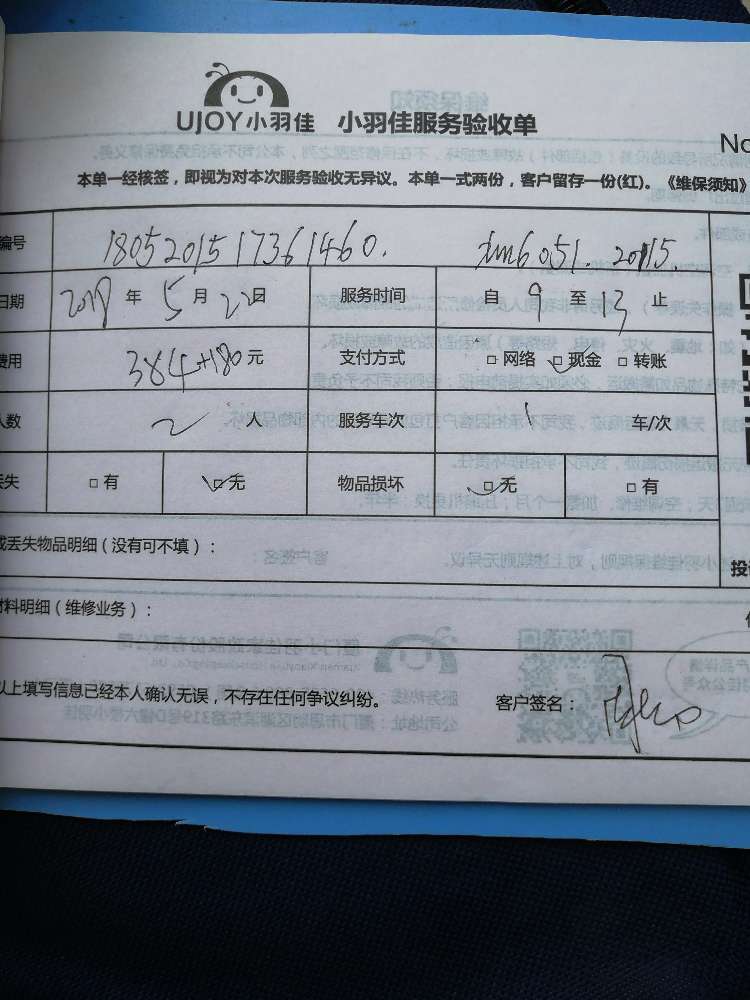 UJOY小羽佳 小羽佳服务验收单
No
本单一经核签，即视为对本次服务验收无异议。本单一式两份，客户留存一份(红)。《维保须知》
编号 1805201517361460. xm6051. 20115.
日期 2018 年 5 月 22 日 服务时间 自 9 至 13 止
费用 384+180 元 支付方式 □ 网络 □ 现金 □ 转账
人数 2 人 服务车次 1 车/次
丢失 □ 有 □ 无 物品损坏 □ 无 □ 有
或丢失物品明细（没有可不填）：
材料明细（维修业务）：
以上填写信息已经本人确认无误，不存在任何争议纠纷。 客户签名：